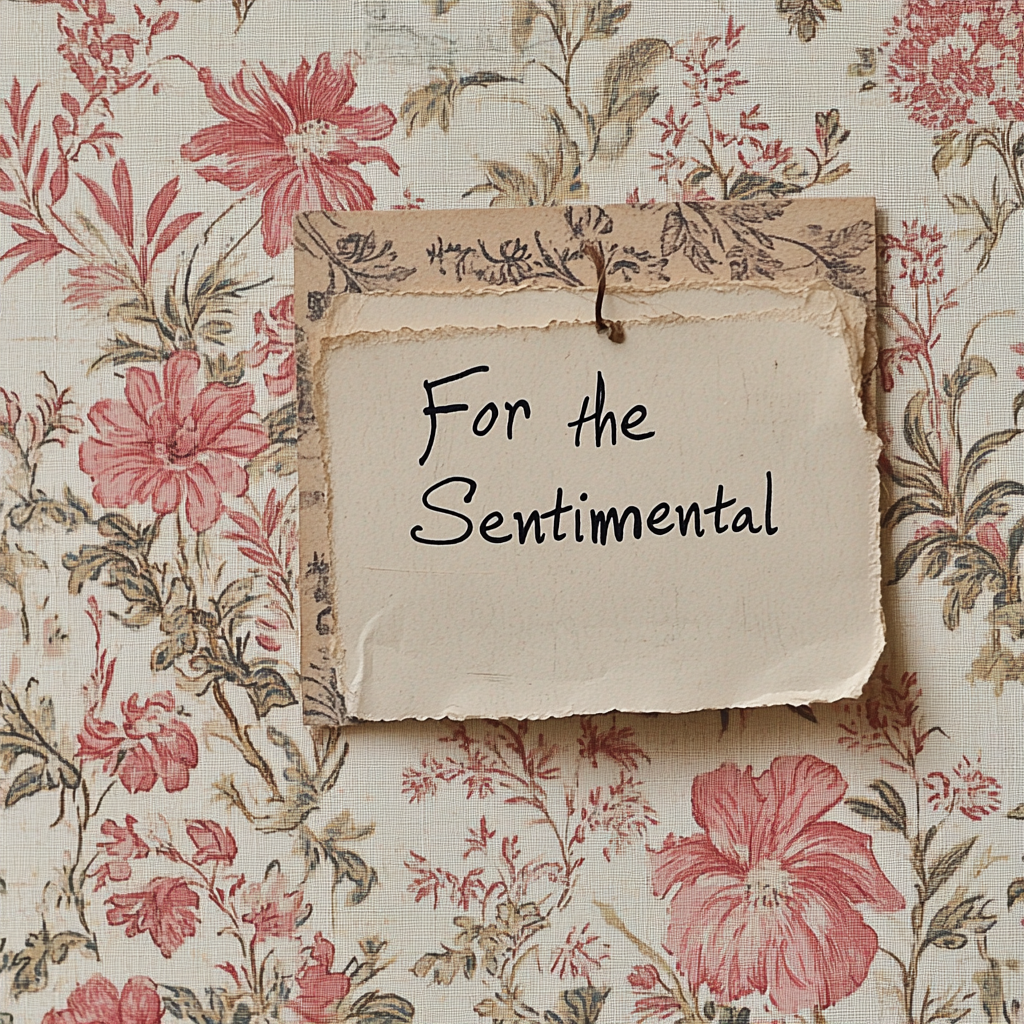 For the
Sentimental